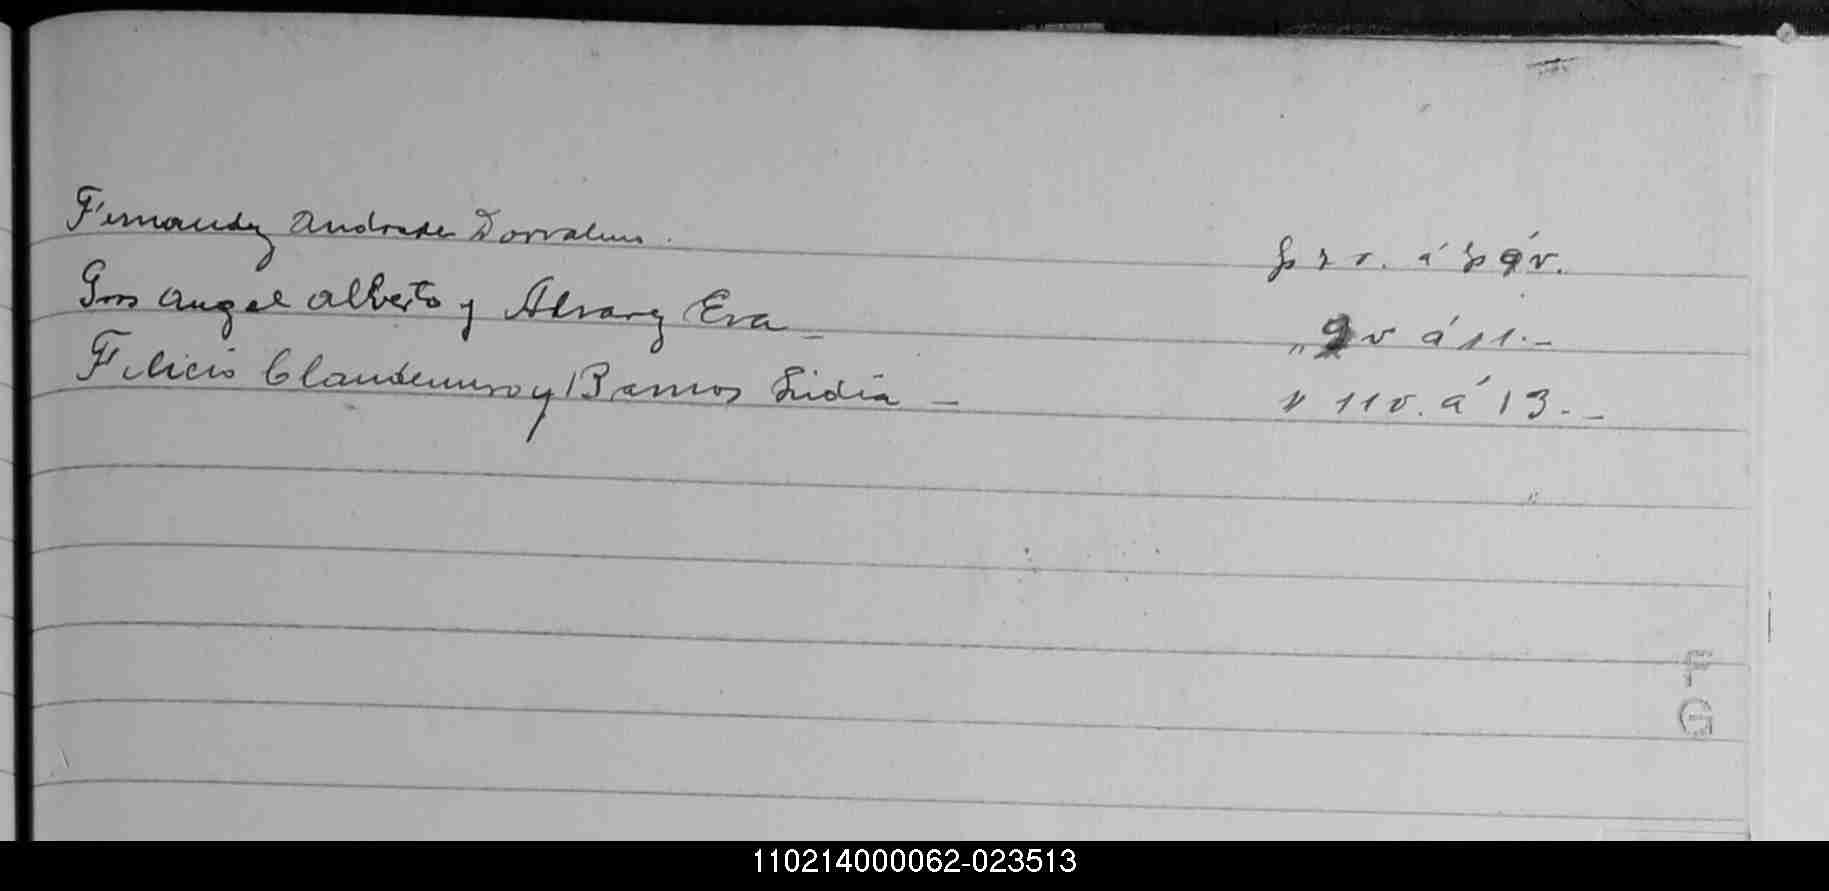 Fernandez Andrade Dorvalino.
Gros Angel Alberto y Alvarez Eva _
Felicio Claudemiro y Ramos Lidia _
" 9 v á 11. _
" 11 v. á 13. _
F
G
110214000062-023513